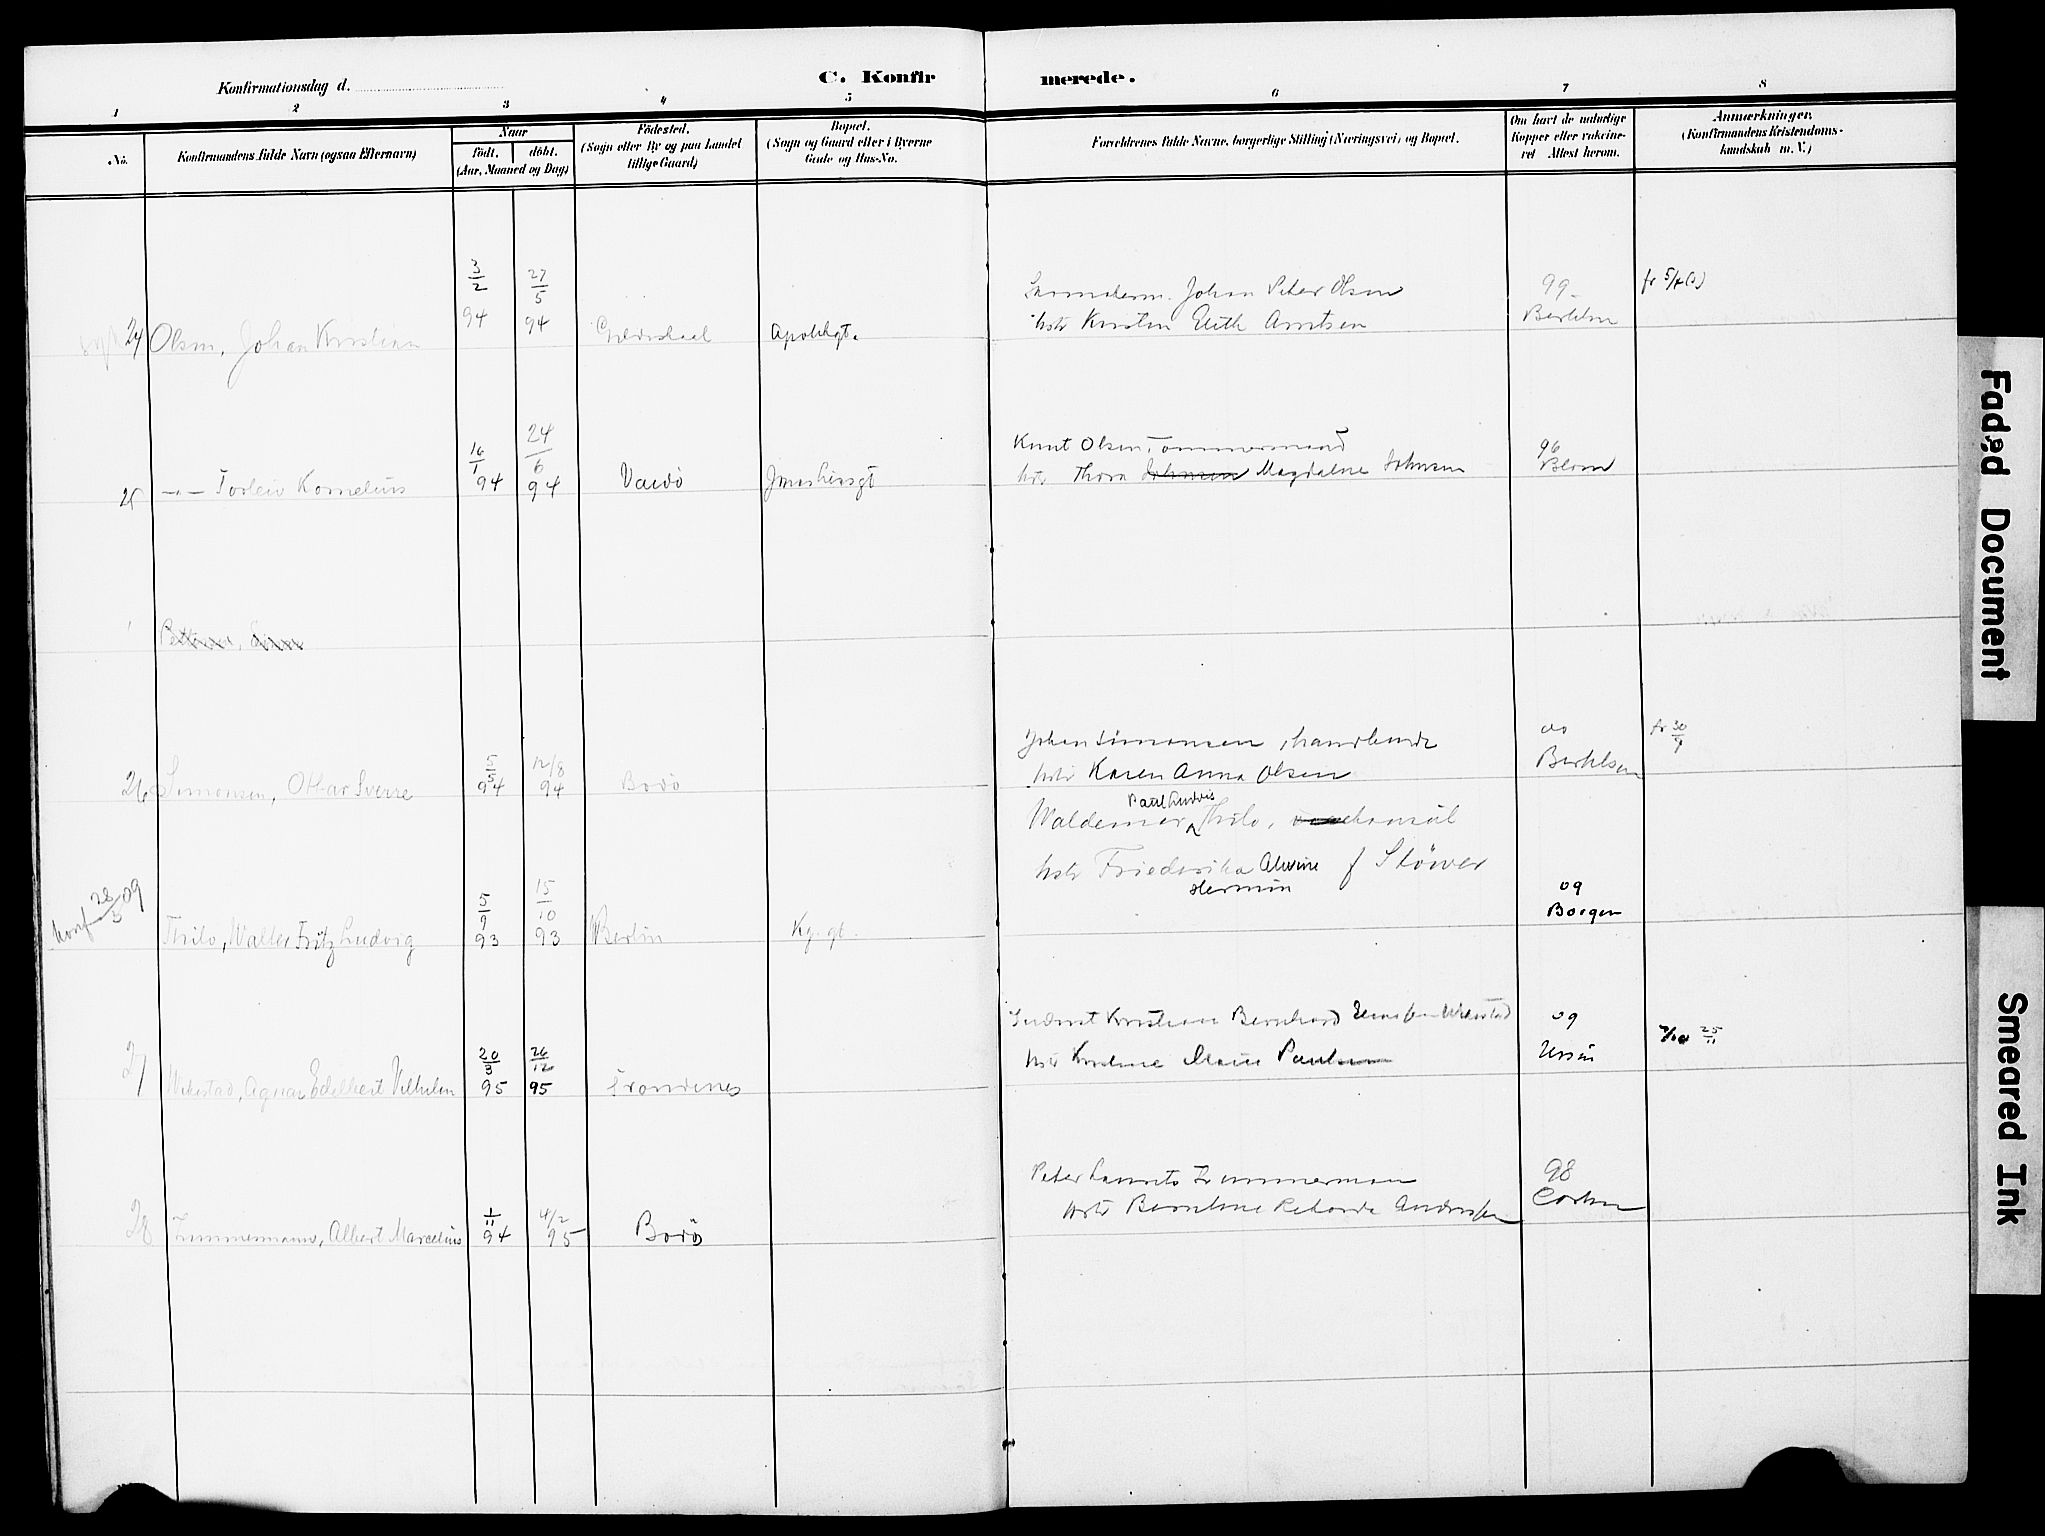 Konfirmationsdag d.
C. Konfirmerede.
1 2 3 4 5 6 7 8
No.
Konfirmandens fulde Navn (ogsaa Efternavn)
Naar
født. døbt.
(Aar, Maaned og Dag)
Fødested.
(Sogn eller By og paa Landet
tillige Gaard)
Bopæl.
(Sogn og Gaard eller i Byerne
Gade og Hus-No.
Forældrenes fulde Navne, borgerlige Stilling (Næringsvei) og Bopæl.
Om havt de naturlige
Kopper eller vakcine-
ret Attest herom.
Anmærkninger.
(Konfirmandens Kristendoms-
kundskab m. V.)
24 Olsen, Johan Kristian 3/2 94 27/5 94 Gildeskaal Apothkgt.
Johan Peter Olsen
Kirsten Arntsen
99
Berthelsen
25 —"— Torleiv Kornelius 16/1 94 24/6 94 Vardö
Knut Olsen, Tømmermand
hstr Thora Johnsen Magdalene Johnsen
96
Blom
26 Simonsen, Ottar Sverre 5/5 94 12/8 94 Bodö
Johan Simonsen, handlende
hstr Karen Anna Olsen
00
Berthelsen
fr 30/9
Konf 28/3 09
Thilo, Walter Fritz Ludvig 5/9 93 15/10 93 Berlin Kg. gt.
Paul Ludvig
Waldemar Thilo, konsül
hstr Friederika Alwine f Stöwer
Hermin
09
Borgen
27 Wikestad, Agnar Edelbert Vilhelm 20/3 95 26/12 95 Trondenes
Kristian Bernhard Wikestad
hstr Marie Paulsen
09
25/11
28 Zimmermann, Albert Marcelius 1/11 94 4/2 95 Bodö
Peter Laurits Zimmerman
hstr Andersen
98
Faded Document
Smeared Ink